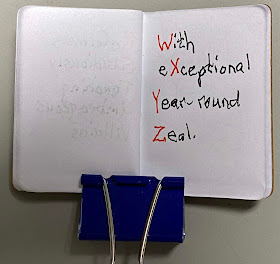 With
eXceptional
Year-round
Zeal.